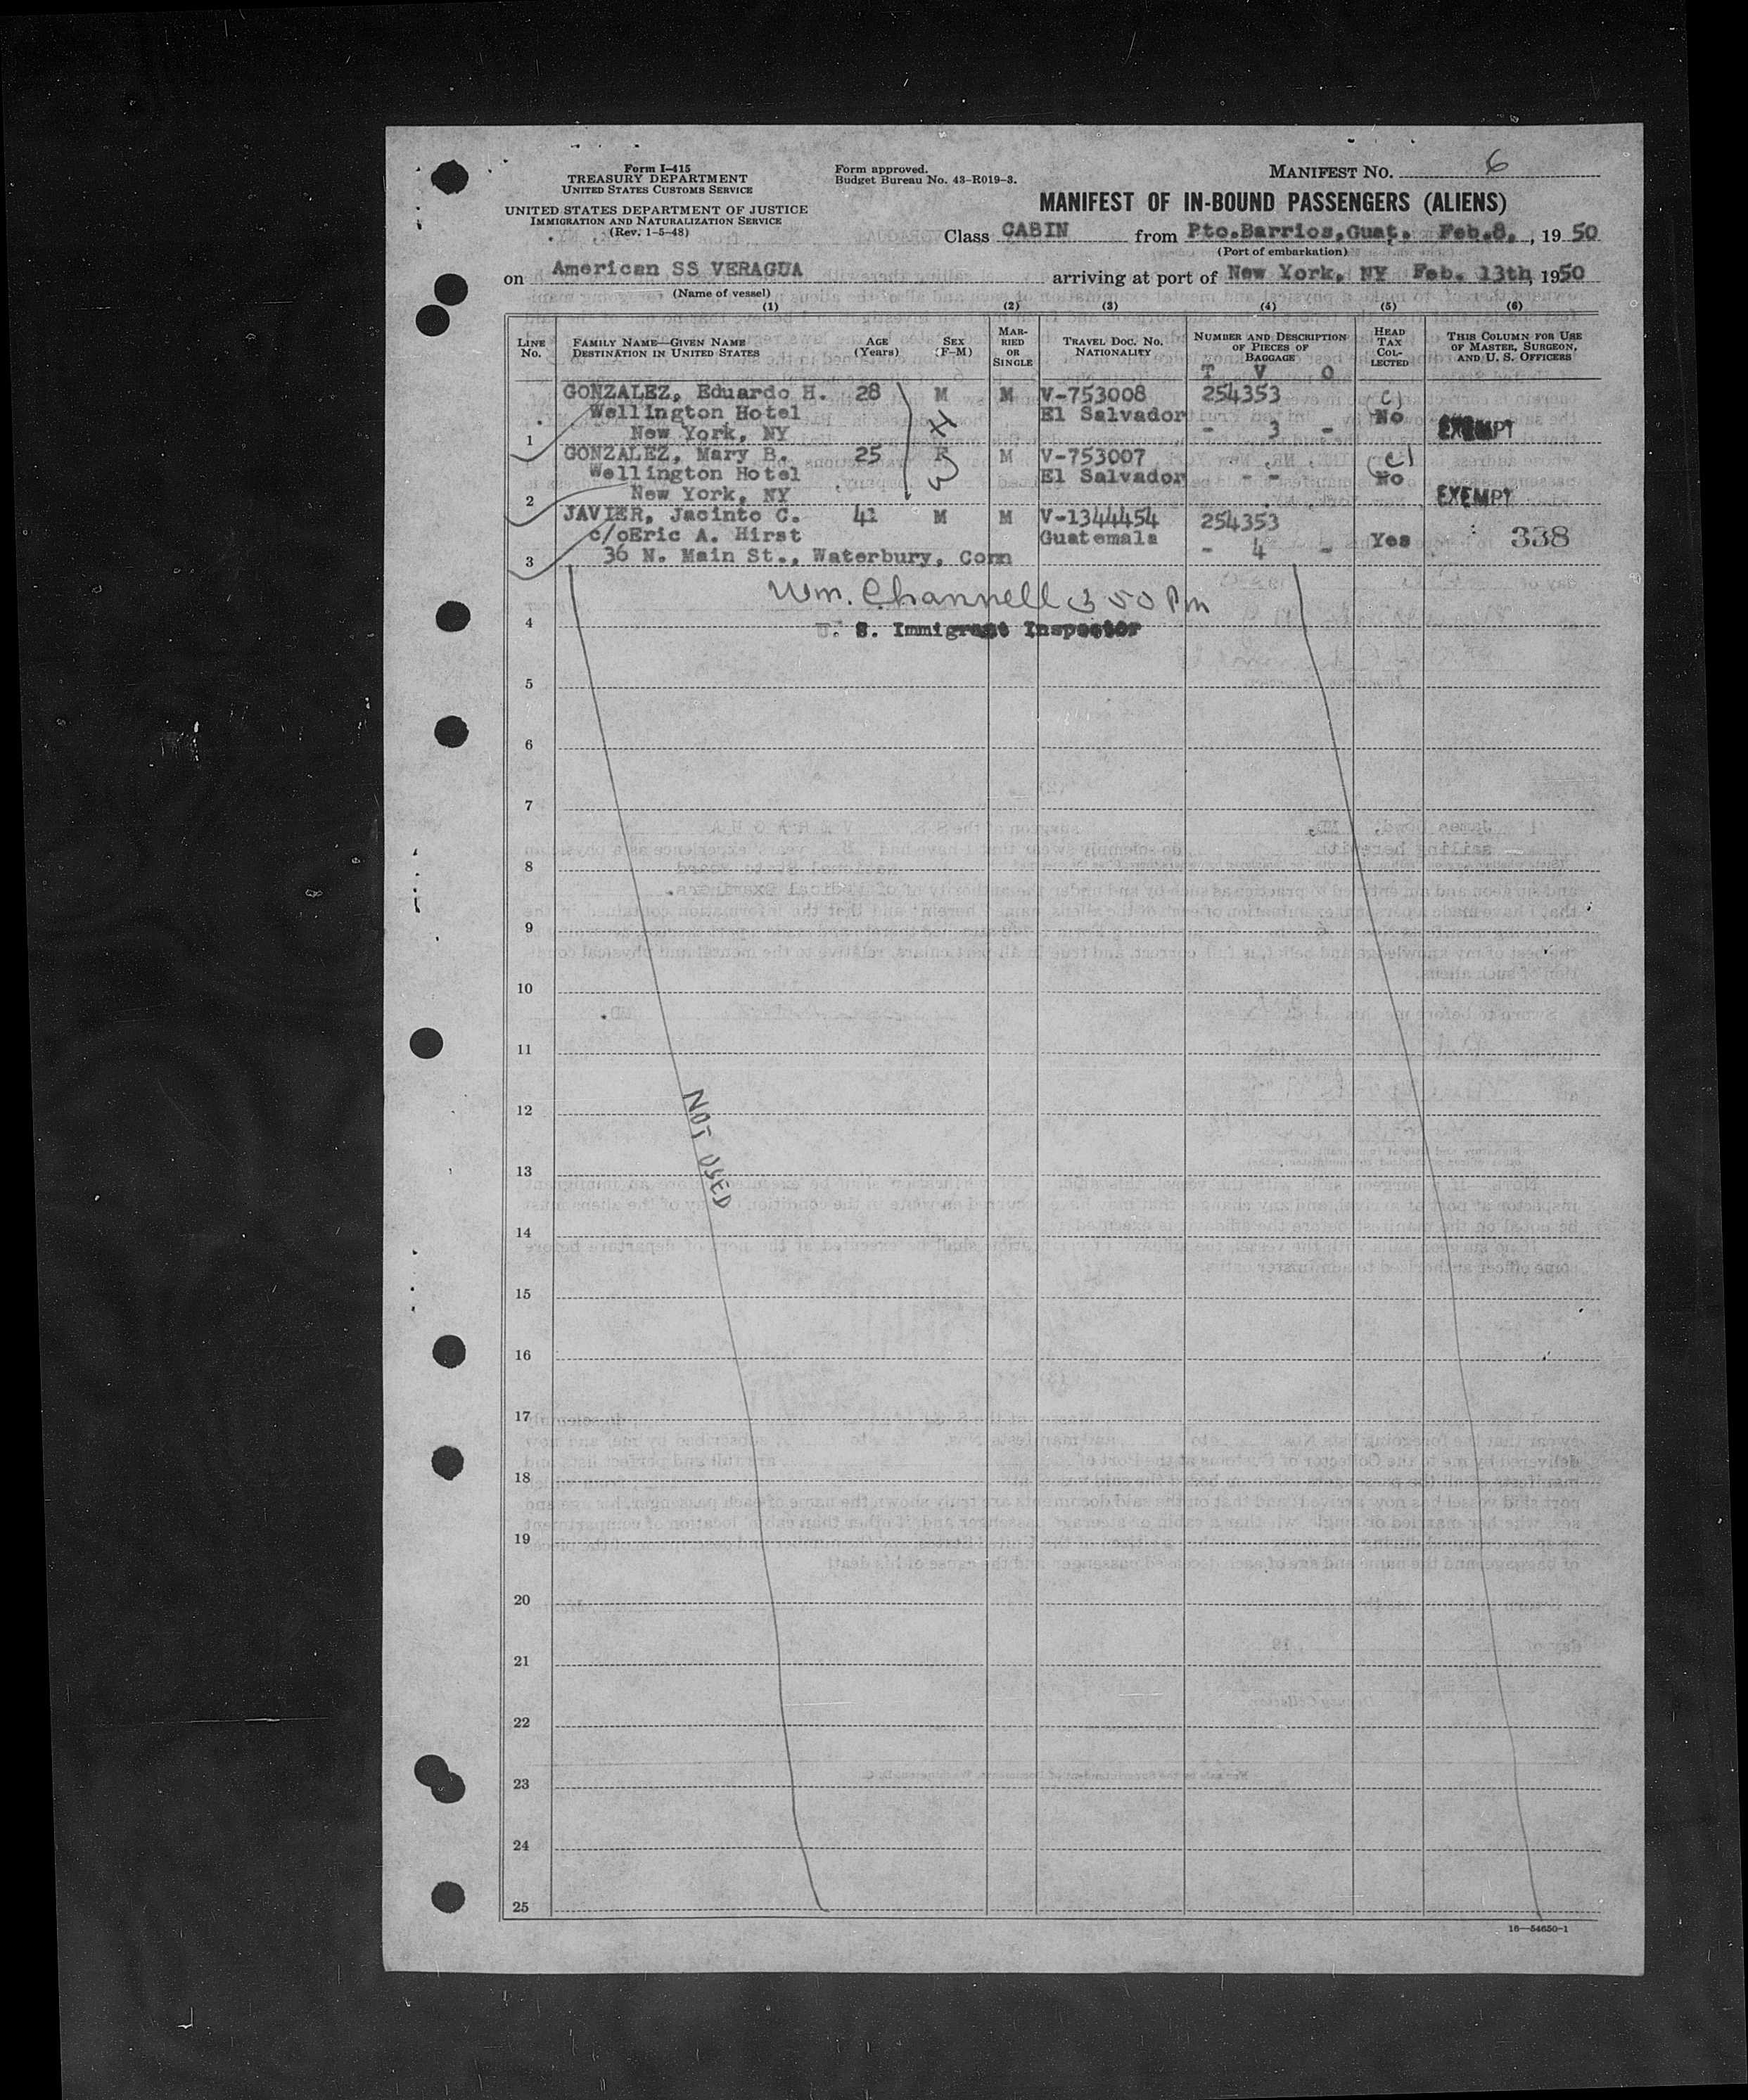 Form I-415
TREASURY DEPARTMENT
UNITED STATES CUSTOMS SERVICE
UNITED STATES DEPARTMENT OF JUSTICE
IMMIGRATION AND NATURALIZATION SERVICE
(Rev. 1-5-48)
Form approved.
Budget Bureau No. 43-R019-3.
MANIFEST NO. 6
MANIFEST OF IN-BOUND PASSENGERS (ALIENS)
Class CABIN from Pto.Barrios,Guat. Feb.8, , 19 50
(Port of embarkation)
on American SS VERAGUA arriving at port of New York, NY Feb. 13th, 1950
(Name of vessel)
(1) (2) (3) (4) (5) (6)
LINE No. FAMILY NAME—GIVEN NAME DESTINATION IN UNITED STATES AGE (Years) SEX (F-M) MARRIED OR SINGLE TRAVEL DOC. NO. NATIONALITY NUMBER AND DESCRIPTION OF PIECES OF BAGGAGE HEAD TAX COLLECTED THIS COLUMN FOR USE OF MASTER, SURGEON, AND U. S. OFFICERS
T V O
GONZALEZ, Eduardo H. 28 M M V-753008 254353 C)
Wellington Hotel H El Salvador No
1 New York, NY - 3 - EXEMPT
GONZALEZ, Mary B. 25 F M V-753007 (C)
Wellington Hotel W El Salvador - - No
2 New York, NY EXEMPT
JAVIER, Jacinto C. 41 M M V-1344454 254353
c/oEric A. Hirst Guatemala Yes 338
3 36 N. Main St., Waterbury, Conn - 4 -
Wm. Channell 3 50 Pm
4 U. S. Immigrant Inspector
5
6
7
8
9
10
11
12
NOT USED
13
14
15
16
17
18
19
20
21
22
23
24
25
16—54650-1